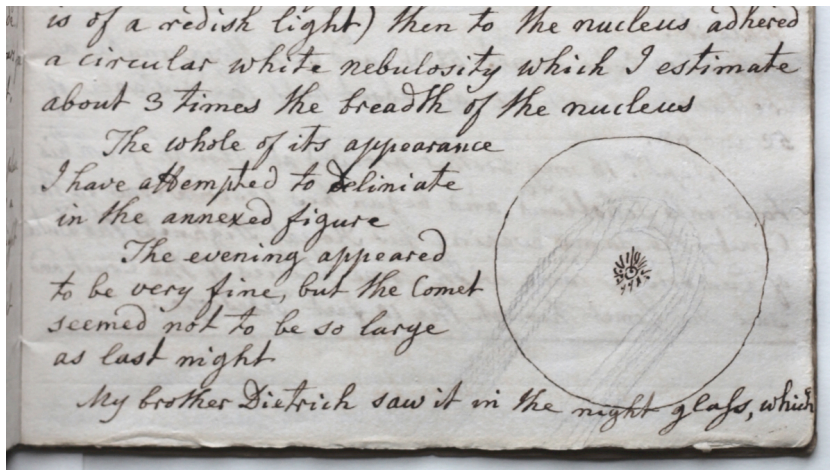 is of a redish light) then to the nucleus adhered
a circular white nebulosity which I estimate
about 3 times the breadth of the nucleus
The whole of its appearance
I have attempted to deliniate
in the annexed figure
The evening appeared
to be very fine, but the Comet
seemed not to be so large
as last night
My brother Dietrich saw it in the night glass, which